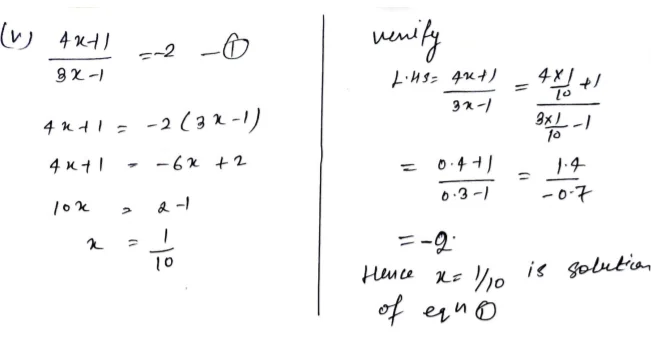 (v) 4x+1 / 3x-1 = -2 —①
4x+1 = -2(3x-1)
4x+1 = -6x+2
10x = 2-1
x = 1/10
verify
L.HS= 4x+1 / 3x-1 = 4×1/10 +1 / 3×1/10 -1
= 0.4+1 / 0.3-1 = 1.4 / -0.7
= -2.
Hence x= 1/10 is solution
of eqn ①